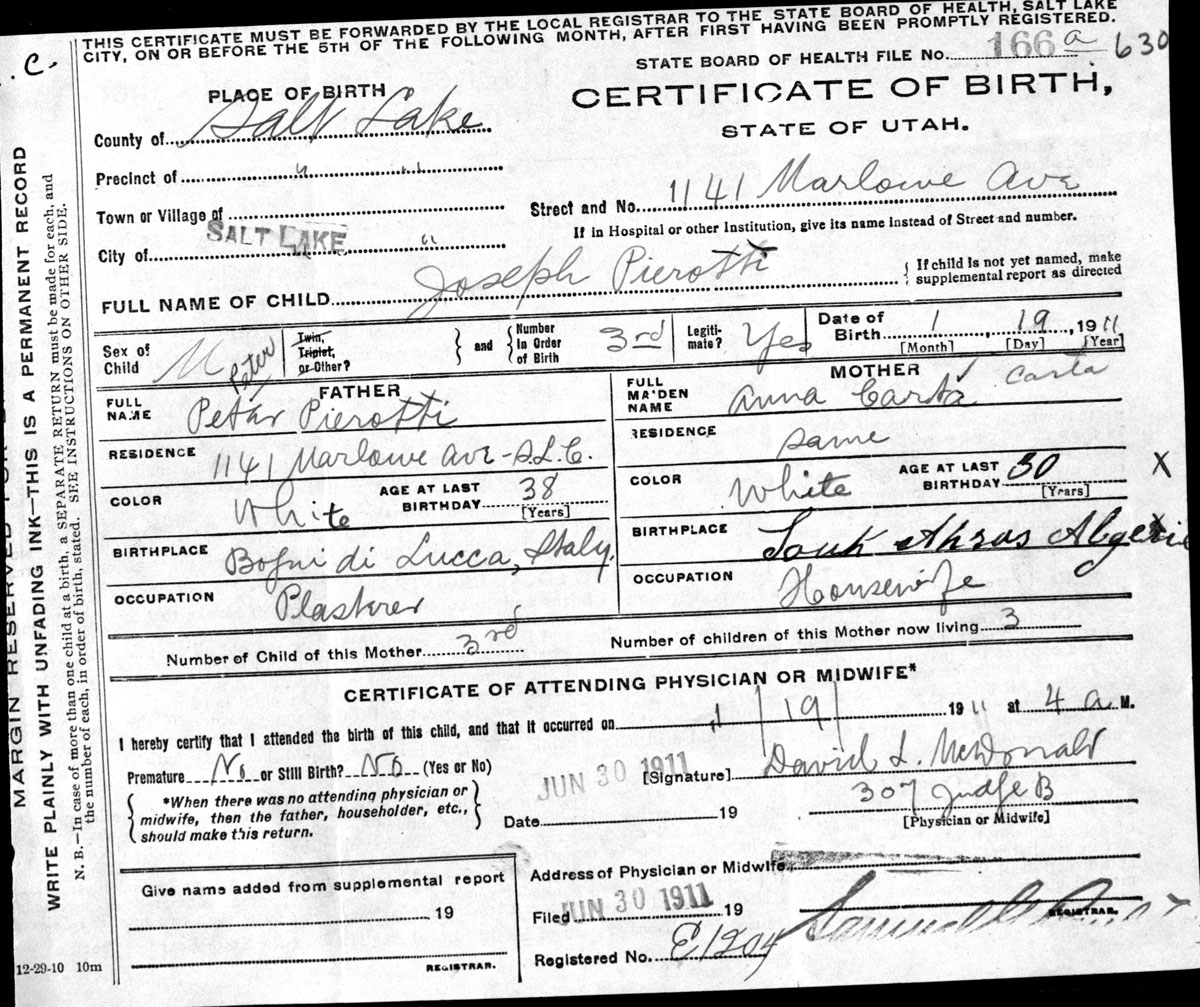 THIS CERTIFICATE MUST BE FORWARDED BY THE LOCAL REGISTRAR TO THE STATE BOARD OF HEALTH, SALT LAKE
CITY, ON OR BEFORE THE 5TH OF THE FOLLOWING MONTH, AFTER FIRST HAVING BEEN PROMPTLY REGISTERED.
C.
STATE BOARD OF HEALTH FILE No. 166 a 630
PLACE OF BIRTH
CERTIFICATE OF BIRTH,
STATE OF UTAH.
County of Salt Lake
Precinct of " "
Town or Village of
Street and No. 1141 Marlowe Ave
If in Hospital or other Institution, give its name instead of Street and number.
City of SALT LAKE "
FULL NAME OF CHILD Joseph Pierotti
If child is not yet named, make
supplemental report as directed
Sex of Child M
Twin, Triplet, or Other?
and
Number In Order of Birth 3rd
Legitimate? Yes
Date of Birth 1, 19, 1911
[Month] [Day] [Year]
FATHER
FULL NAME Petar Pierotti
Peter
RESIDENCE 1141 Marlowe Ave - S.L.C.
COLOR White
AGE AT LAST BIRTHDAY 38
[Years]
BIRTHPLACE Bogni di Lucca, Italy.
OCCUPATION Plasterer
MOTHER
FULL MAIDEN NAME Anna Carta
Carta
RESIDENCE Same
COLOR White
AGE AT LAST BIRTHDAY 30
[Years]
X
BIRTHPLACE Souk Ahras Algerie
OCCUPATION Housewife
Number of Child of this Mother 3rd
Number of children of this Mother now living 3
CERTIFICATE OF ATTENDING PHYSICIAN OR MIDWIFE*
I hereby certify that I attended the birth of this child, and that it occurred on 1 / 19 / 1911 at 4 a M.
Premature No or Still Birth? No (Yes or No)
JUN 30 1911
[Signature] David L. McDonald
*When there was no attending physician or
midwife, then the father, householder, etc.,
should make this return.
Date 19
307 Judge B
[Physician or Midwife]
Give name added from supplemental report
19
REGISTRAR.
Address of Physician or Midwife
Filed JUN 30 1911 19
REGISTRAR.
Registered No. E1204
12-29-10 10m
MARGIN RESERVED FOR
WRITE PLAINLY WITH UNFADING INK—THIS IS A PERMANENT RECORD
N. B.—In case of more than one child at a birth, a SEPARATE RETURN must be made for each, and
the number of each, in order of birth, stated. SEE INSTRUCTIONS ON OTHER SIDE.